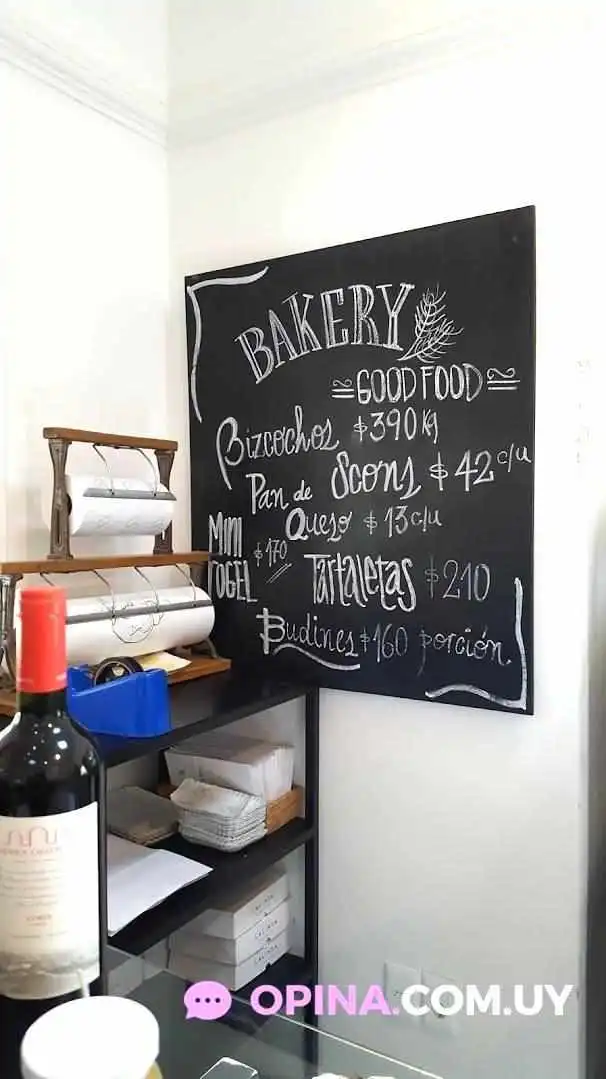 BAKERY
GOOD FOOD
Bizcochos $390 Kg
Scons $42 c/u
Pan de Queso $13 c/u
MINI ROGEL $170
Tartaletas $210
Budines $160 porción
OPINA.COM.UY